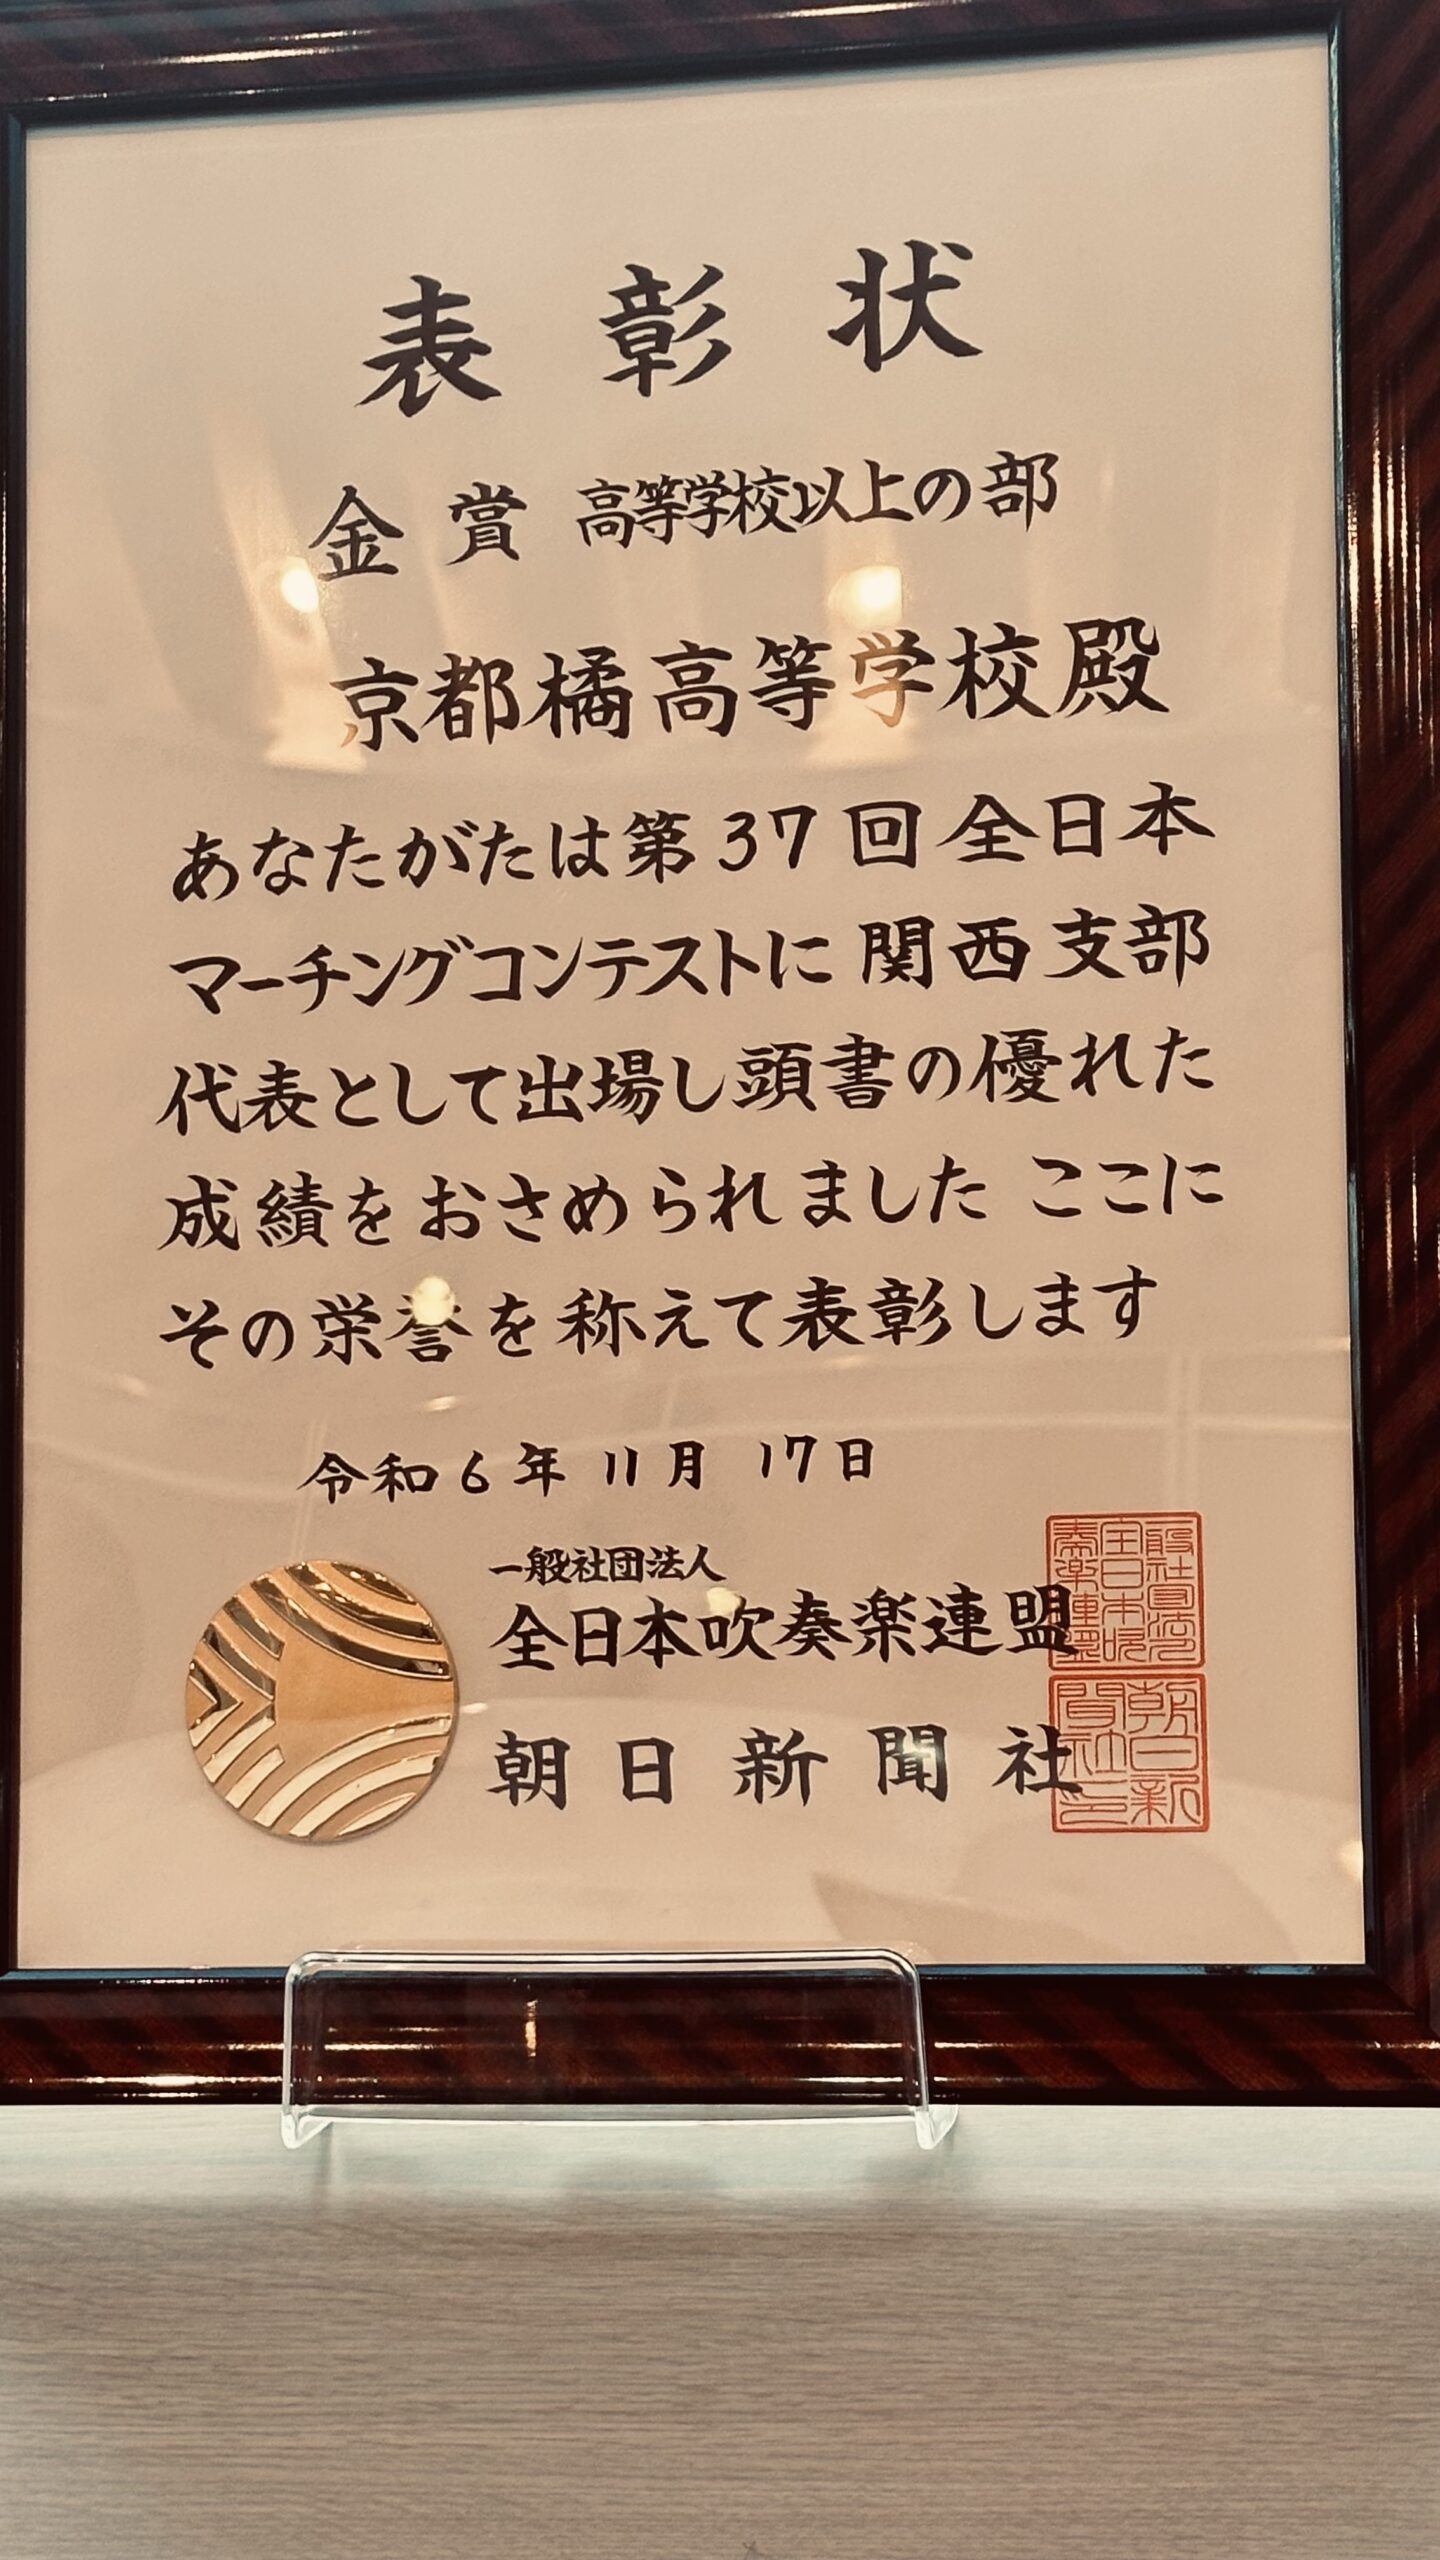 表彰状
金賞 高等学校以上の部
京都橘高等学校殿
あなたがたは第37回全日本
マーチングコンテストに関西支部
代表として出場し頭書の優れた
成績をおさめられました ここに
その栄誉を称えて表彰します
令和6年11月17日
一般社団法人
全日本吹奏楽連盟
朝日新聞社